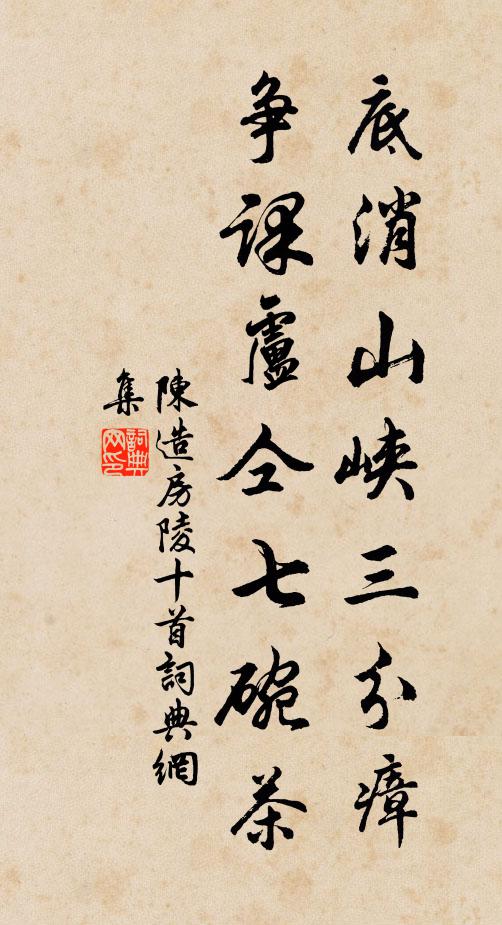 底消山峽三分瘴
争課盧仝七碗茶
陳造房陵十首詞典網
集
詞典
网印